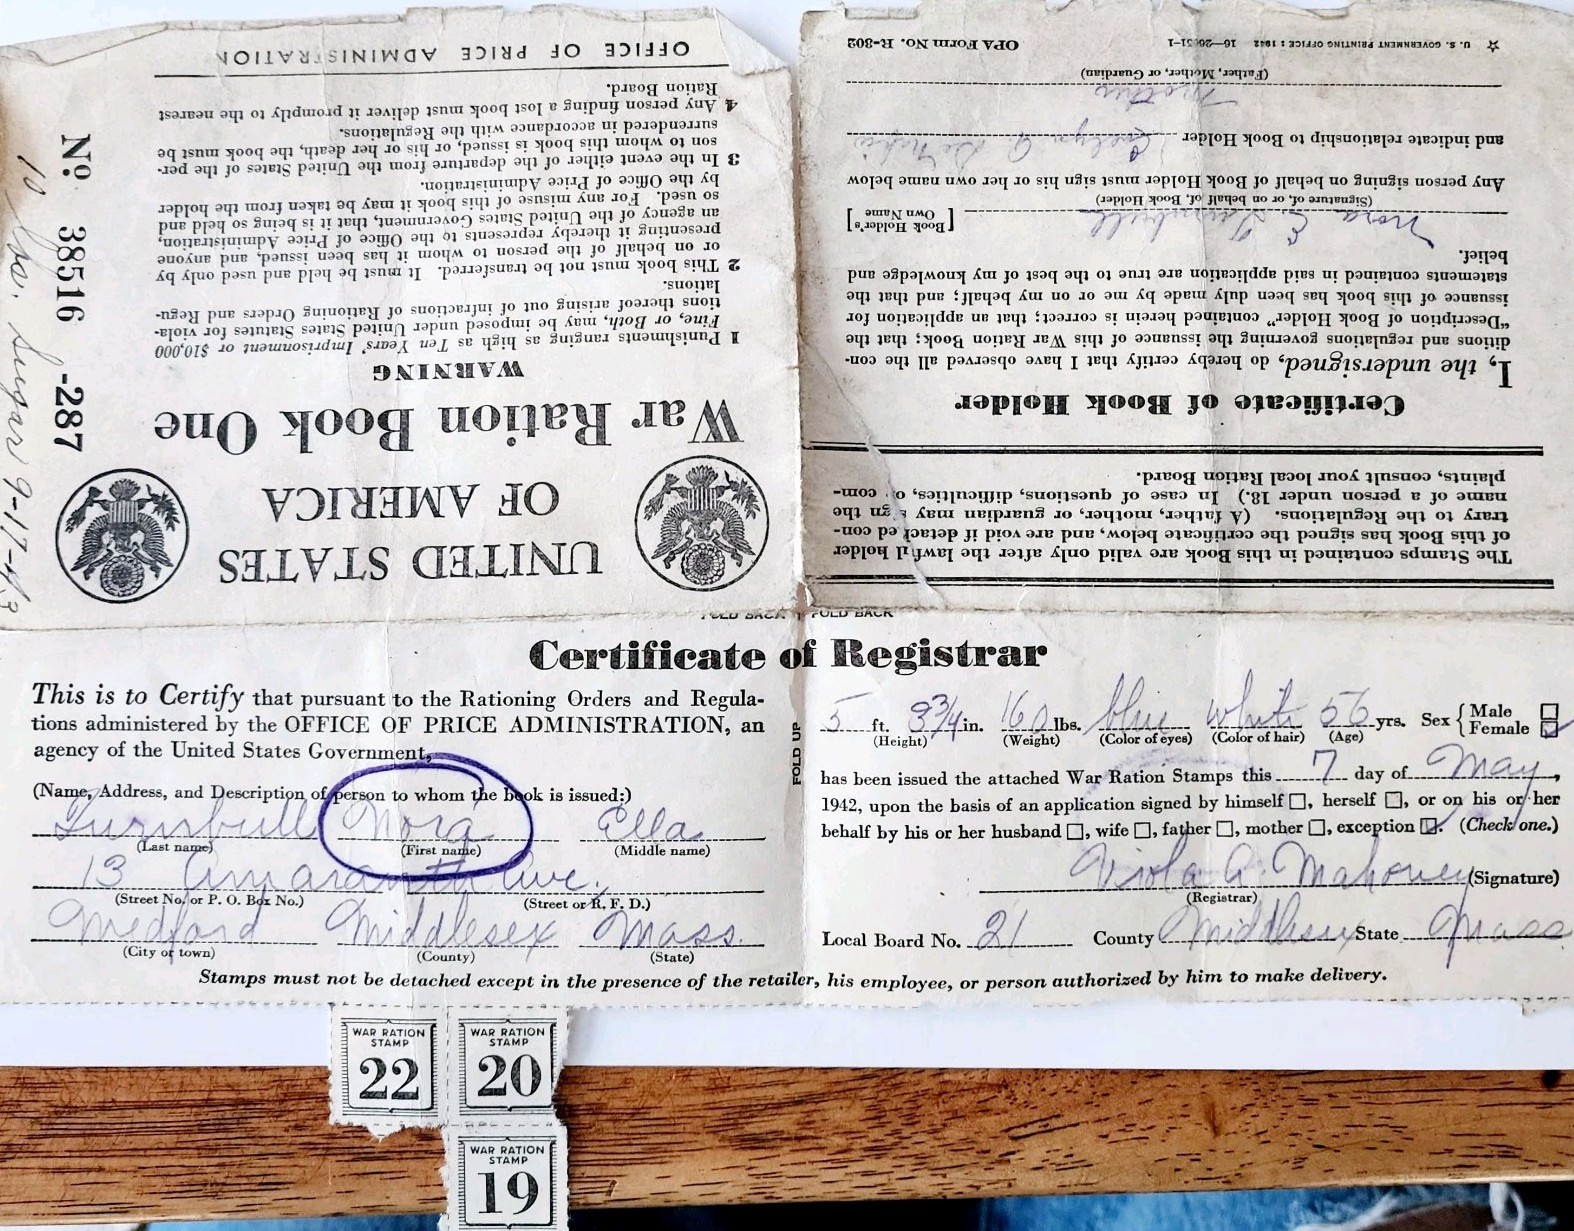 UNITED STATES
OF AMERICA
War Ration Book One
WARNING
1 Punishments ranging as high as Ten Years' Imprisonment or $10,000
Fine, or Both, may be imposed under United States Statutes for viola-
tions thereof arising out of infractions of Rationing Orders and Regu-
lations.
2 This book must not be transferred. It must be held and used only by
or on behalf of the person to whom it has been issued, and anyone
presenting it thereby represents to the Office of Price Administration,
an agency of the United States Government, that it is being so held and
so used. For any misuse of this book it may be taken from the holder
by the Office of Price Administration.
3 In the event either of the departure from the United States of the per-
son to whom this book is issued, or his or her death, the book must be
surrendered in accordance with the Regulations.
4 Any person finding a lost book must deliver it promptly to the nearest
Ration Board.
OFFICE OF PRICE ADMINISTRATION
No. 38516 -287
10 lbs. Sugar 9-17-43
The Stamps contained in this Book are valid only after the lawful holder
of this Book has signed the certificate below, and are void if detached con-
trary to the Regulations. (A father, mother, or guardian may sign the
name of a person under 18.) In case of questions, difficulties, or com-
plaints, consult your local Ration Board.
Certificate of Book Holder
I, the undersigned, do hereby certify that I have observed all the con-
ditions and regulations governing the issuance of this War Ration Book; that the
"Description of Book Holder" contained herein is correct; that an application for
issuance of this book has been duly made by me or on my behalf; and that the
statements contained in said application are true to the best of my knowledge and
belief.
[Book Holder's Own Name] Nora E. Turnbull
(Signature of, or on behalf of, Book Holder)
Any person signing on behalf of Book Holder must sign his or her own name below
and indicate relationship to Book Holder Evelyn A.
Mother
(Father, Mother, or Guardian)
U. S. GOVERNMENT PRINTING OFFICE : 1942 OPA Form No. R-302
FOLD BACK FOLD BACK
Certificate of Registrar
This is to Certify that pursuant to the Rationing Orders and Regula-
tions administered by the OFFICE OF PRICE ADMINISTRATION, an
agency of the United States Government,
(Name, Address, and Description of person to whom the book is issued:)
Turnbull Nora Ella
(Last name) (First name) (Middle name)
13 Amaranth Ave.
(Street No. or P. O. Box No.) (Street or R. F. D.)
Medford Middlesex Mass.
(City or town) (County) (State)
FOLD UP
5 ft. 3 3/4 in. 160 lbs. blue white 56 yrs. Sex { Male
Female
(Height) (Weight) (Color of eyes) (Color of hair) (Age)
has been issued the attached War Ration Stamps this 7 day of May,
1942, upon the basis of an application signed by himself ☐, herself ☐, or on his or her
behalf by his or her husband ☐, wife ☐, father ☐, mother ☐, exception ☑. (Check one.)
Viola A. Mahoney (Signature)
(Registrar)
Local Board No. 21 County Middlesex State Mass
Stamps must not be detached except in the presence of the retailer, his employee, or person authorized by him to make delivery.
WAR RATION
STAMP
22
WAR RATION
STAMP
20
WAR RATION
STAMP
19